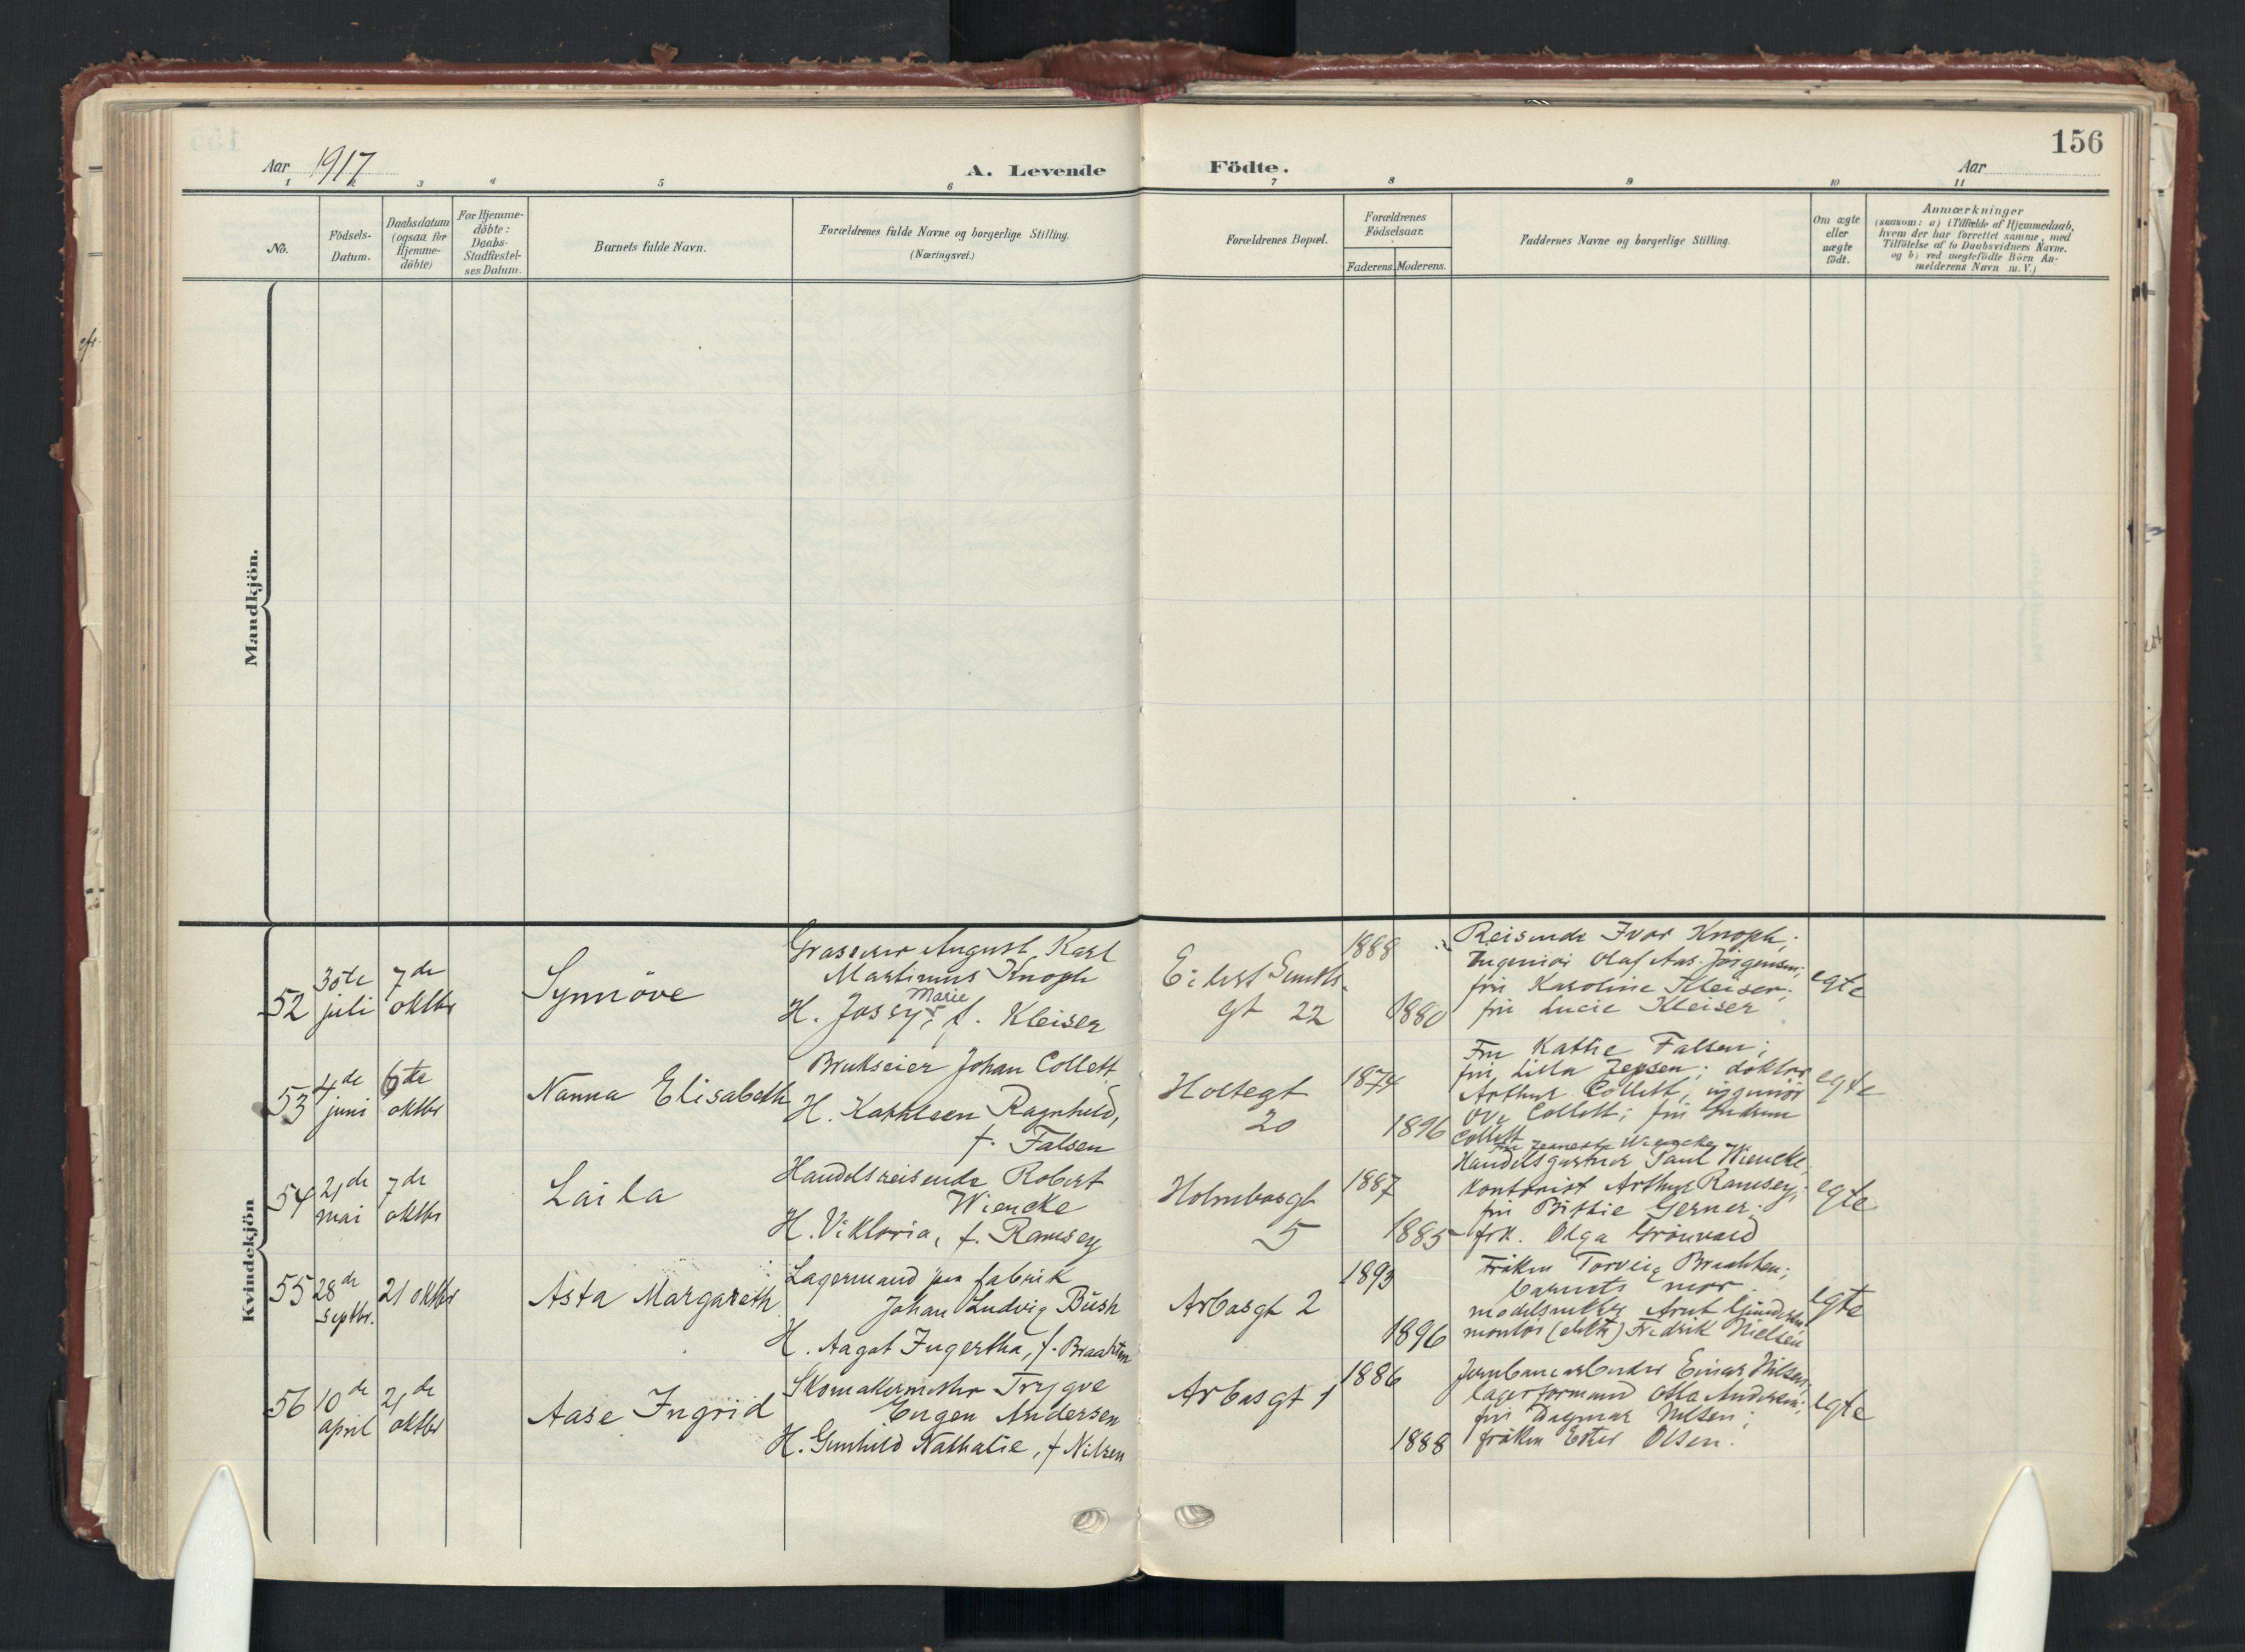 156
Aar 1917
A. Levende Födte.
Aar
1 2 3 4 5 6 7 8 9 10 11
No.
Födsels-Datum.
Daabsdatum (ogsaa for Hjemme-döbte)
For Hjemme-döbte: Daabs-Stadfæstel-ses Datum.
Barnets fulde Navn.
Forældrenes fulde Navne og borgerlige Stilling. (Næringsvei.)
Forældrenes Bopæl.
Forældrenes Födselsaar.
Faderens. Moderens.
Faddernes Navne og borgerlige Stilling.
Om ægte eller uægte födt.
Anmærkninger
(saasom: a) i Tilfælde af Hjemmedaab,
hvem der har forrettet samme, med
Tilföielse af to Daabsvidners Navne.
og b) ved uægtefödte Börn An-
melderens Navn m. V.)
Mandkjön.
Kvindekjön
52
30te juli
7de oktbr
Synnöve
August Karl
Martinus Knoph
H. Jossy Marie, f. Kleiser
Eilert Sundts
gt 22
1888
1880
Reisende Ivar Knoph;
Ingeniör Olaf Aas-Jörgensen;
fru Karoline Kleiser;
fru Lucie Kleiser
egte
53
4de juni
6te oktbr
Nanna Elisabeth
Brukseier Johan Collett
H. Kathleen Ragnhild,
f. Falsen
Holtegt
20
1874
1896
Fru Kathe Falsen;
fru Lilla Jepsen; doktor
Arthur Collett, ingeniör
Ove Collett; fru Gudrun
Collett
egte
54
21de mai
7de oktbr
Laila
Handelsreisende Robert
Wiencke
H. Viktoria, f. Ramsey
Holmborgt
5
1887
1885
Fru Wiencke
Handelsgartner Paul Wiencke,
kontorist Arthur Ramsey;
fru Bittie Gerner;
frk. Olga Grönvard
egte
55
28de septbr.
21 oktbr
Asta Margareth
Lagermand paa fabrik
Johan Ludvig Bush
H. Aagot Ingertha, f. Braathen
Arbosgt 2
1893
1896
Fröken Torveig Braathen;
barnets mor
modelsnekker Arnt Gundersen
montör (elektr) Fredrik Nielsen
egte
56
10de april
21de oktbr
Aase Ingrid
Skomakermester Trygve
Eugen Andersen
H. Gunhild Nathalie, f Nilsen
Arbosgt 1
1886
1888
Jernbanearbeider Einar Nilsen;
lagerformand Otto Andersen;
fru Dagmar Nilsen;
fröken Ester Olsen.
egte